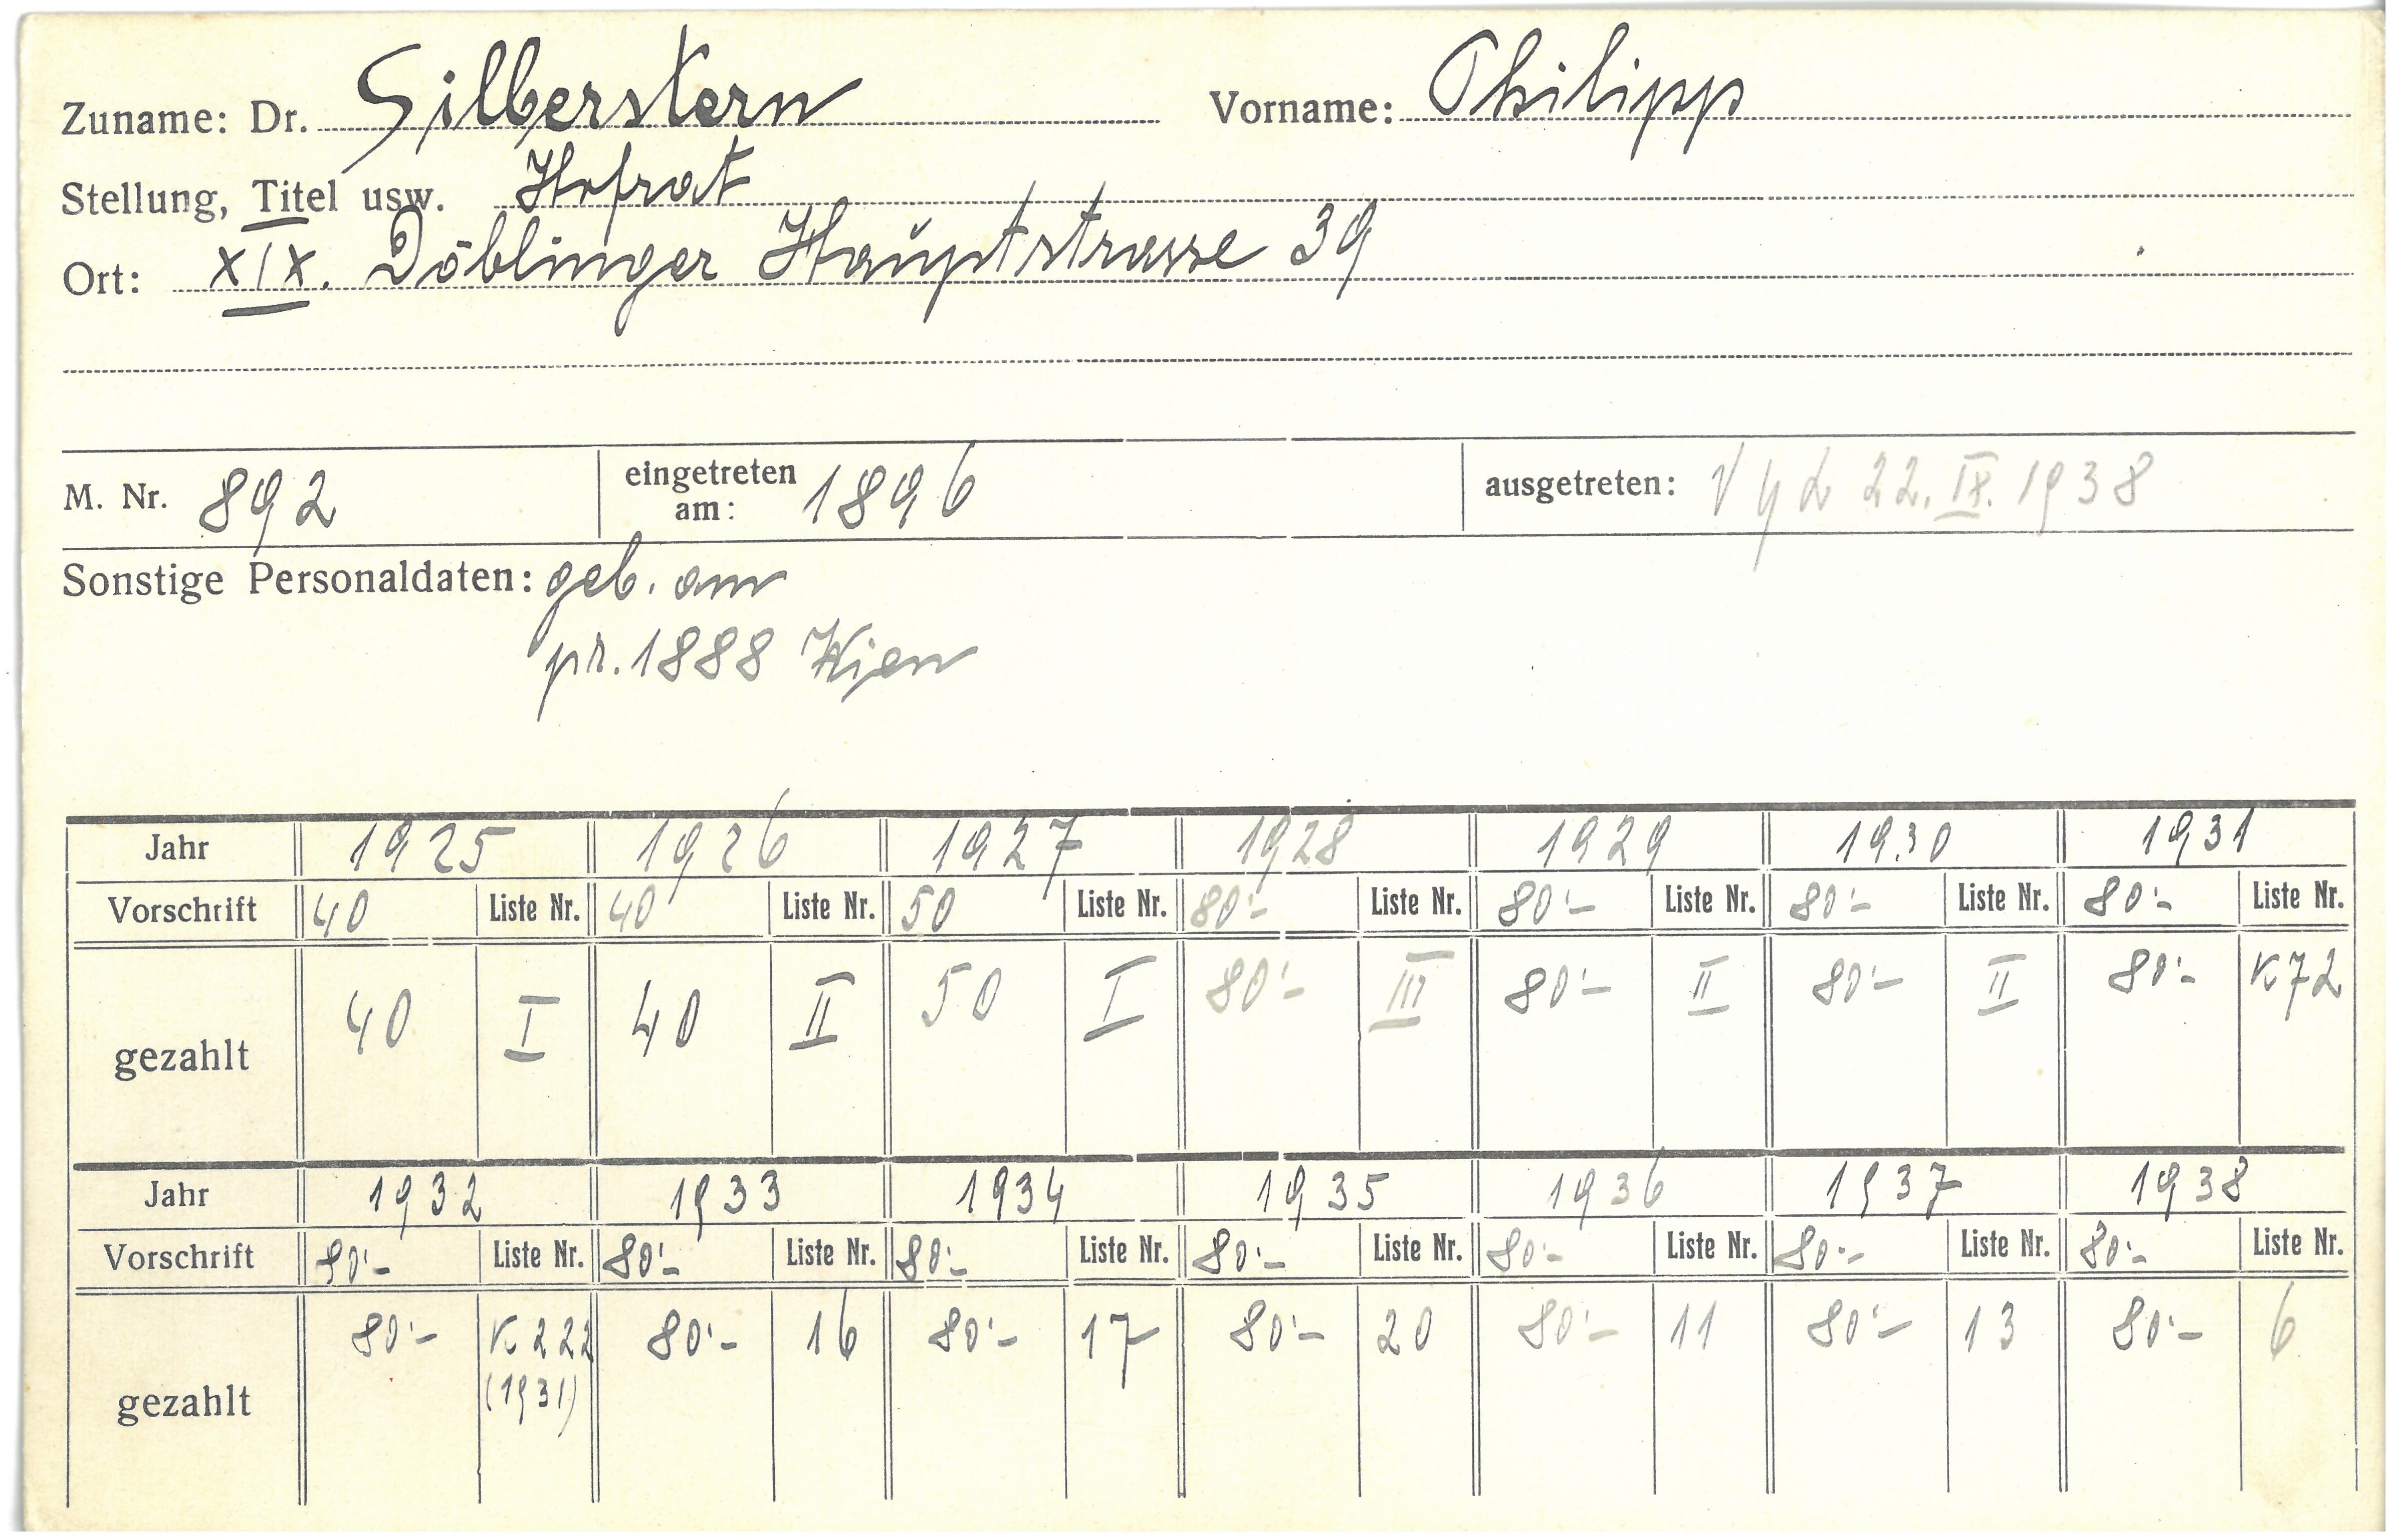 Zuname: Dr. Silberstern Vorname: Philipp
Stellung, Titel usw. Hofrat
Ort: XIX. Döblinger Hauptstrasse 39
M. Nr. 892 eingetreten am: 1896 ausgetreten: 22. IX. 1938
Sonstige Personaldaten: geb. am
pr. 1888 Wien
Jahr 1925 1926 1927 1928 1929 1930 1931
Vorschrift 40 Liste Nr. 40 Liste Nr. 50 Liste Nr. 80'- Liste Nr. 80'- Liste Nr. 80'- Liste Nr. 80'- Liste Nr.
gezahlt 40 I 40 II 50 I 80'- III 80'- II 80'- II 80'- K 72
Jahr 1932 1933 1934 1935 1936 1937 1938
Vorschrift 80'- Liste Nr. 80'- Liste Nr. 80'- Liste Nr. 80'- Liste Nr. 80'- Liste Nr. 80'- Liste Nr. 80'- Liste Nr.
gezahlt 80'- K 222 (1931) 80'- 16 80'- 17 80'- 20 80'- 11 80'- 13 80'- 6